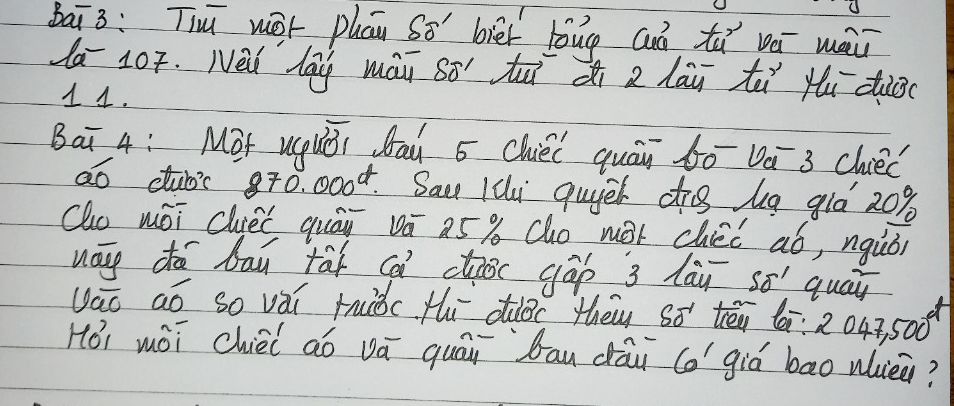 Bài 3: Tìm một phân số biết tổng của tử và mẫu
là 107. Nếu lấy mẫu số trừ đi 2 lần tử thì được
11.
Bài 4: Một người bán 5 chiếc quần bò và 3 chiếc
áo được 870.000đ. Sau khi quyết định hạ giá 20%
cho mỗi chiếc quần và 25% cho một chiếc áo, người
này đã bán tất cả được gấp 3 lần số quần
vào áo so với trước thì được thêm số tiền là: 2 047,500đ
Hỏi mỗi chiếc áo và quần ban đầu có giá bao nhiêu?